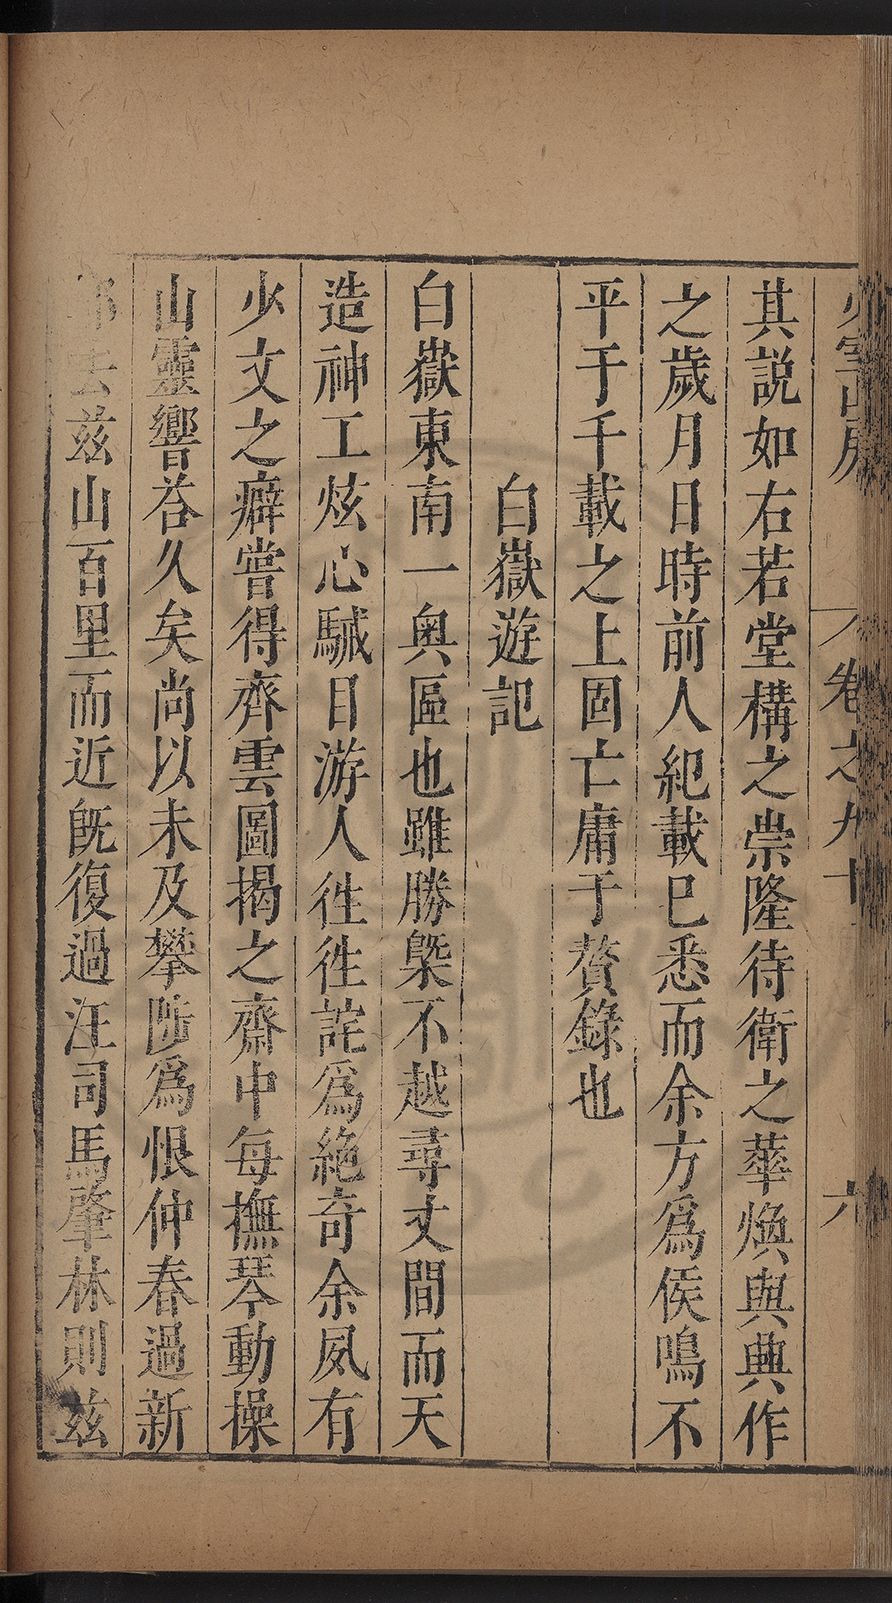 少室山房 卷之九十 六
其説如右若堂構之崇隆待衛之華煥與典作
之歲月日時前人紀載已悉而余方爲侯鳴不
平于千載之上固亡庸于贅錄也
白嶽遊記
白嶽東南一奥區也雖勝槩不越尋丈間而天
造神工炫心駴目游人徃徃詫爲絶奇余夙有
少文之癖嘗得齊雲圖揭之齋中每撫琴動操
山靈響荅久矣尚以未及攀陟爲恨仲春過新
都去兹山百里而近旣復過汪司馬肇林則兹